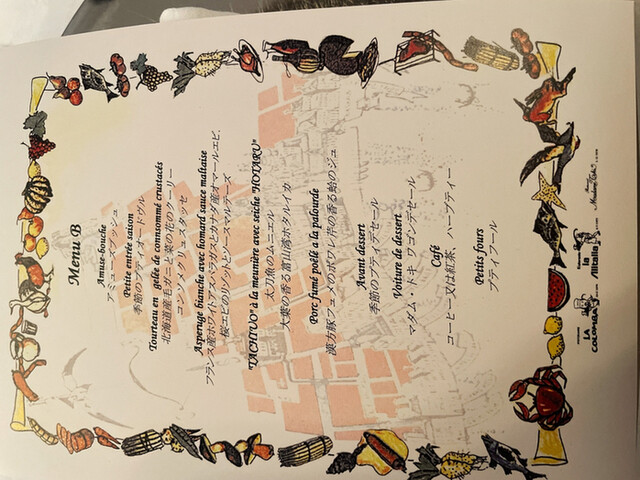 Menu B
Amuse-bouche
アミューズブッシュ
Petite entrée saison
季節のプティオードヴル
Tourteau en gelée de connsommé crustacés
北海道産毛ガニと菜の花のクーリー
コンソメクリュスタッセ
Asperuge bianche avec homard sauce maltaise
フランス産ホワイトアスパラガスとカナダ産オマールエビ、
桜エビのリゾットとソースマルテーズ
"TACHIUO" à la meunière avec seiche "HOTARU"
太刀魚のムニエル
大葉の香る富山湾ホタルイカ
Porc fumé poêlé a la palourde
漢方豚フュメのポワレ 芹の香る蛤のジュ
Avant dessert
季節のプティデセール
Voiture de dessert
マダム・トキ ワゴンデセール
Café
コーヒー又は紅茶、ハーブティー
Petits fours
プティフール
la
LA
COLOMBA